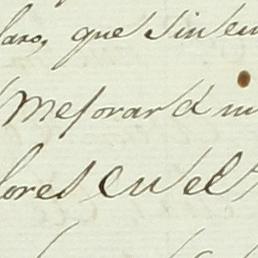 laro, que sin em
mejorar à mi
lores en el